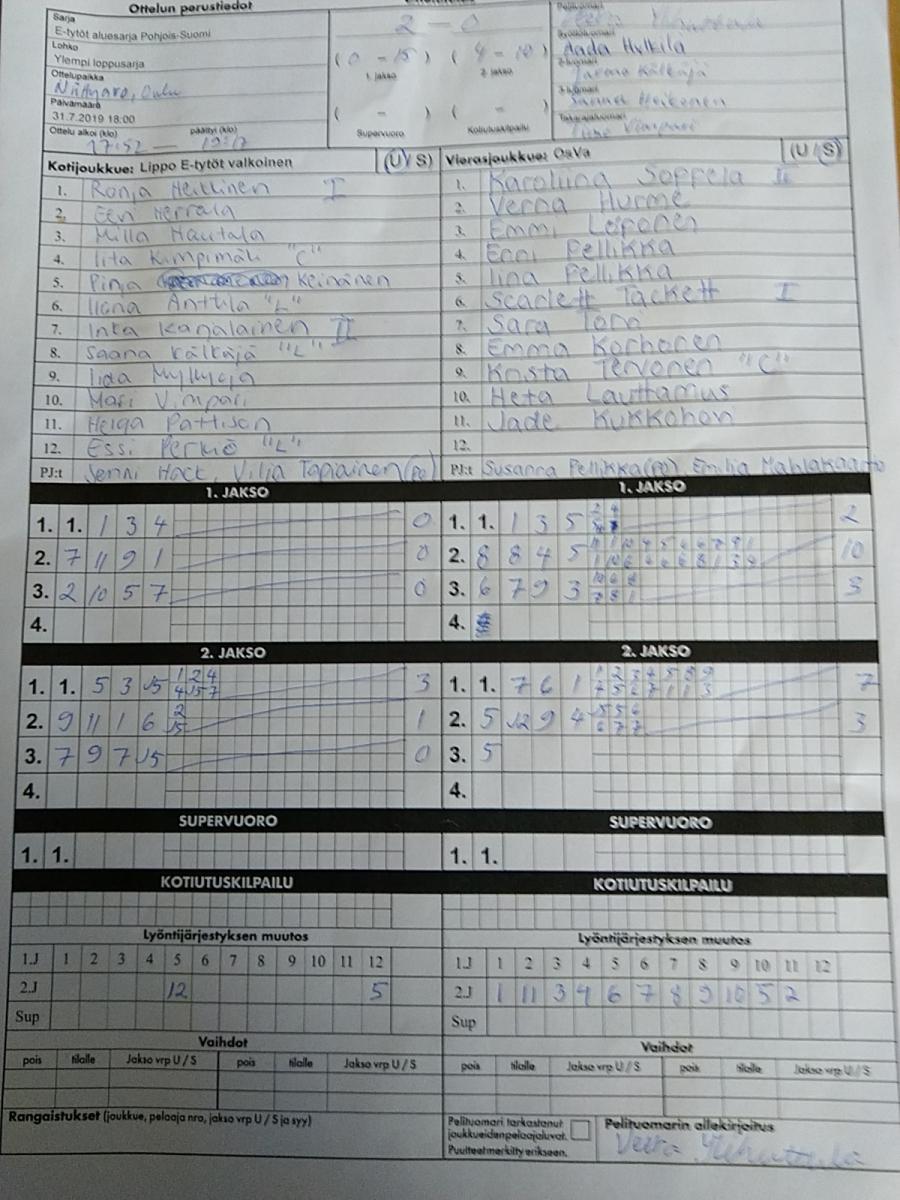 Ottelun perustiedot
Sarja
E-tytöt aluesarja Pohjois-Suomi
Lohko
Ylempi loppusarja
Ottelupaikka
Oulu
Päivämäärä
31.7.2019 18:00
Ottelu alkoi (klo) päättyi (klo)
17:52 —
2 - 0
( 0 - 15 ) ( 4 - 10 )
1. jakso 2. jakso
( - ) ( - )
Supervuoro Kotiutuskilpailu
Pelituomari
Aada Hylkilä
2-tuomari
Jarmo Kälkäjä
3-tuomari
Sanna Heikonen
Takarajatuomari
Kotijoukkue: Lippo E-tytöt valkoinen (U/S)
1. Ronja Heikkinen I
2. Eevi Herrala
3. Milla Hautala
4. Iita Kimpimäki "C"
5. Pinja Keinänen
6. Iiona Anttila "L"
7. Inka Kanalainen II
8. Saana Kälkäjä "L"
9. Iida Myllyoja
10. Mari Vimpari
11. Helga Pattison
12. Essi Perkiö "L"
PJ:t Senni Hock, Vilja Tapiainen (PO)
Vierasjoukkue: OuVa (U/S)
1. Karoliina Soppela II
2. Verna Hurme
3. Emmi Leponen
4. Enni Pellikka
5. Iina Pellikka
6. Scarlett Tackett I
7. Sara Torri
8. Emma Korhonen
9. Krista Tervonen "C"
10. Heta Lauttamus
11. Jade Kukkohon
12.
PJ:t Susanna Pellikka (PO), Emilia Mahlakaarto
1. JAKSO
1. 1. 1 3 4 0
2. 7 11 9 1 0
3. 2 10 5 7 0
4.
1. JAKSO
1. 1. 1 3 5 2
2. 8 8 4 5 10
3. 6 7 9 3 3
4.
2. JAKSO
1. 1. 5 3 J5 3
2. 9 11 1 6 1
3. 7 9 7 J5 0
4.
2. JAKSO
1. 1. 7 6 1 7
2. 5 J2 9 4 3
3. 5
4.
SUPERVUORO
1. 1.
SUPERVUORO
1. 1.
KOTIUTUSKILPAILU
KOTIUTUSKILPAILU
Lyöntijärjestyksen muutos
1.J 1 2 3 4 5 6 7 8 9 10 11 12
2.J 12 5
Sup
Lyöntijärjestyksen muutos
1.J 1 2 3 4 5 6 7 8 9 10 11 12
2.J 1 11 3 4 6 7 8 9 10 5 2
Sup
Vaihdot
pois tilalle Jakso vrp U / S pois tilalle Jakso vrp U / S
Vaihdot
pois tilalle Jakso vrp U / S pois tilalle Jakso vrp U / S
Rangaistukset (joukkue, pelaaja nro, jakso vrp U / S ja syy)
Pelituomari tarkastanut
joukkueidenpelaajaluvat.
Puutteet merkitty erikseen.
Pelituomarin allekirjoitus
Veera